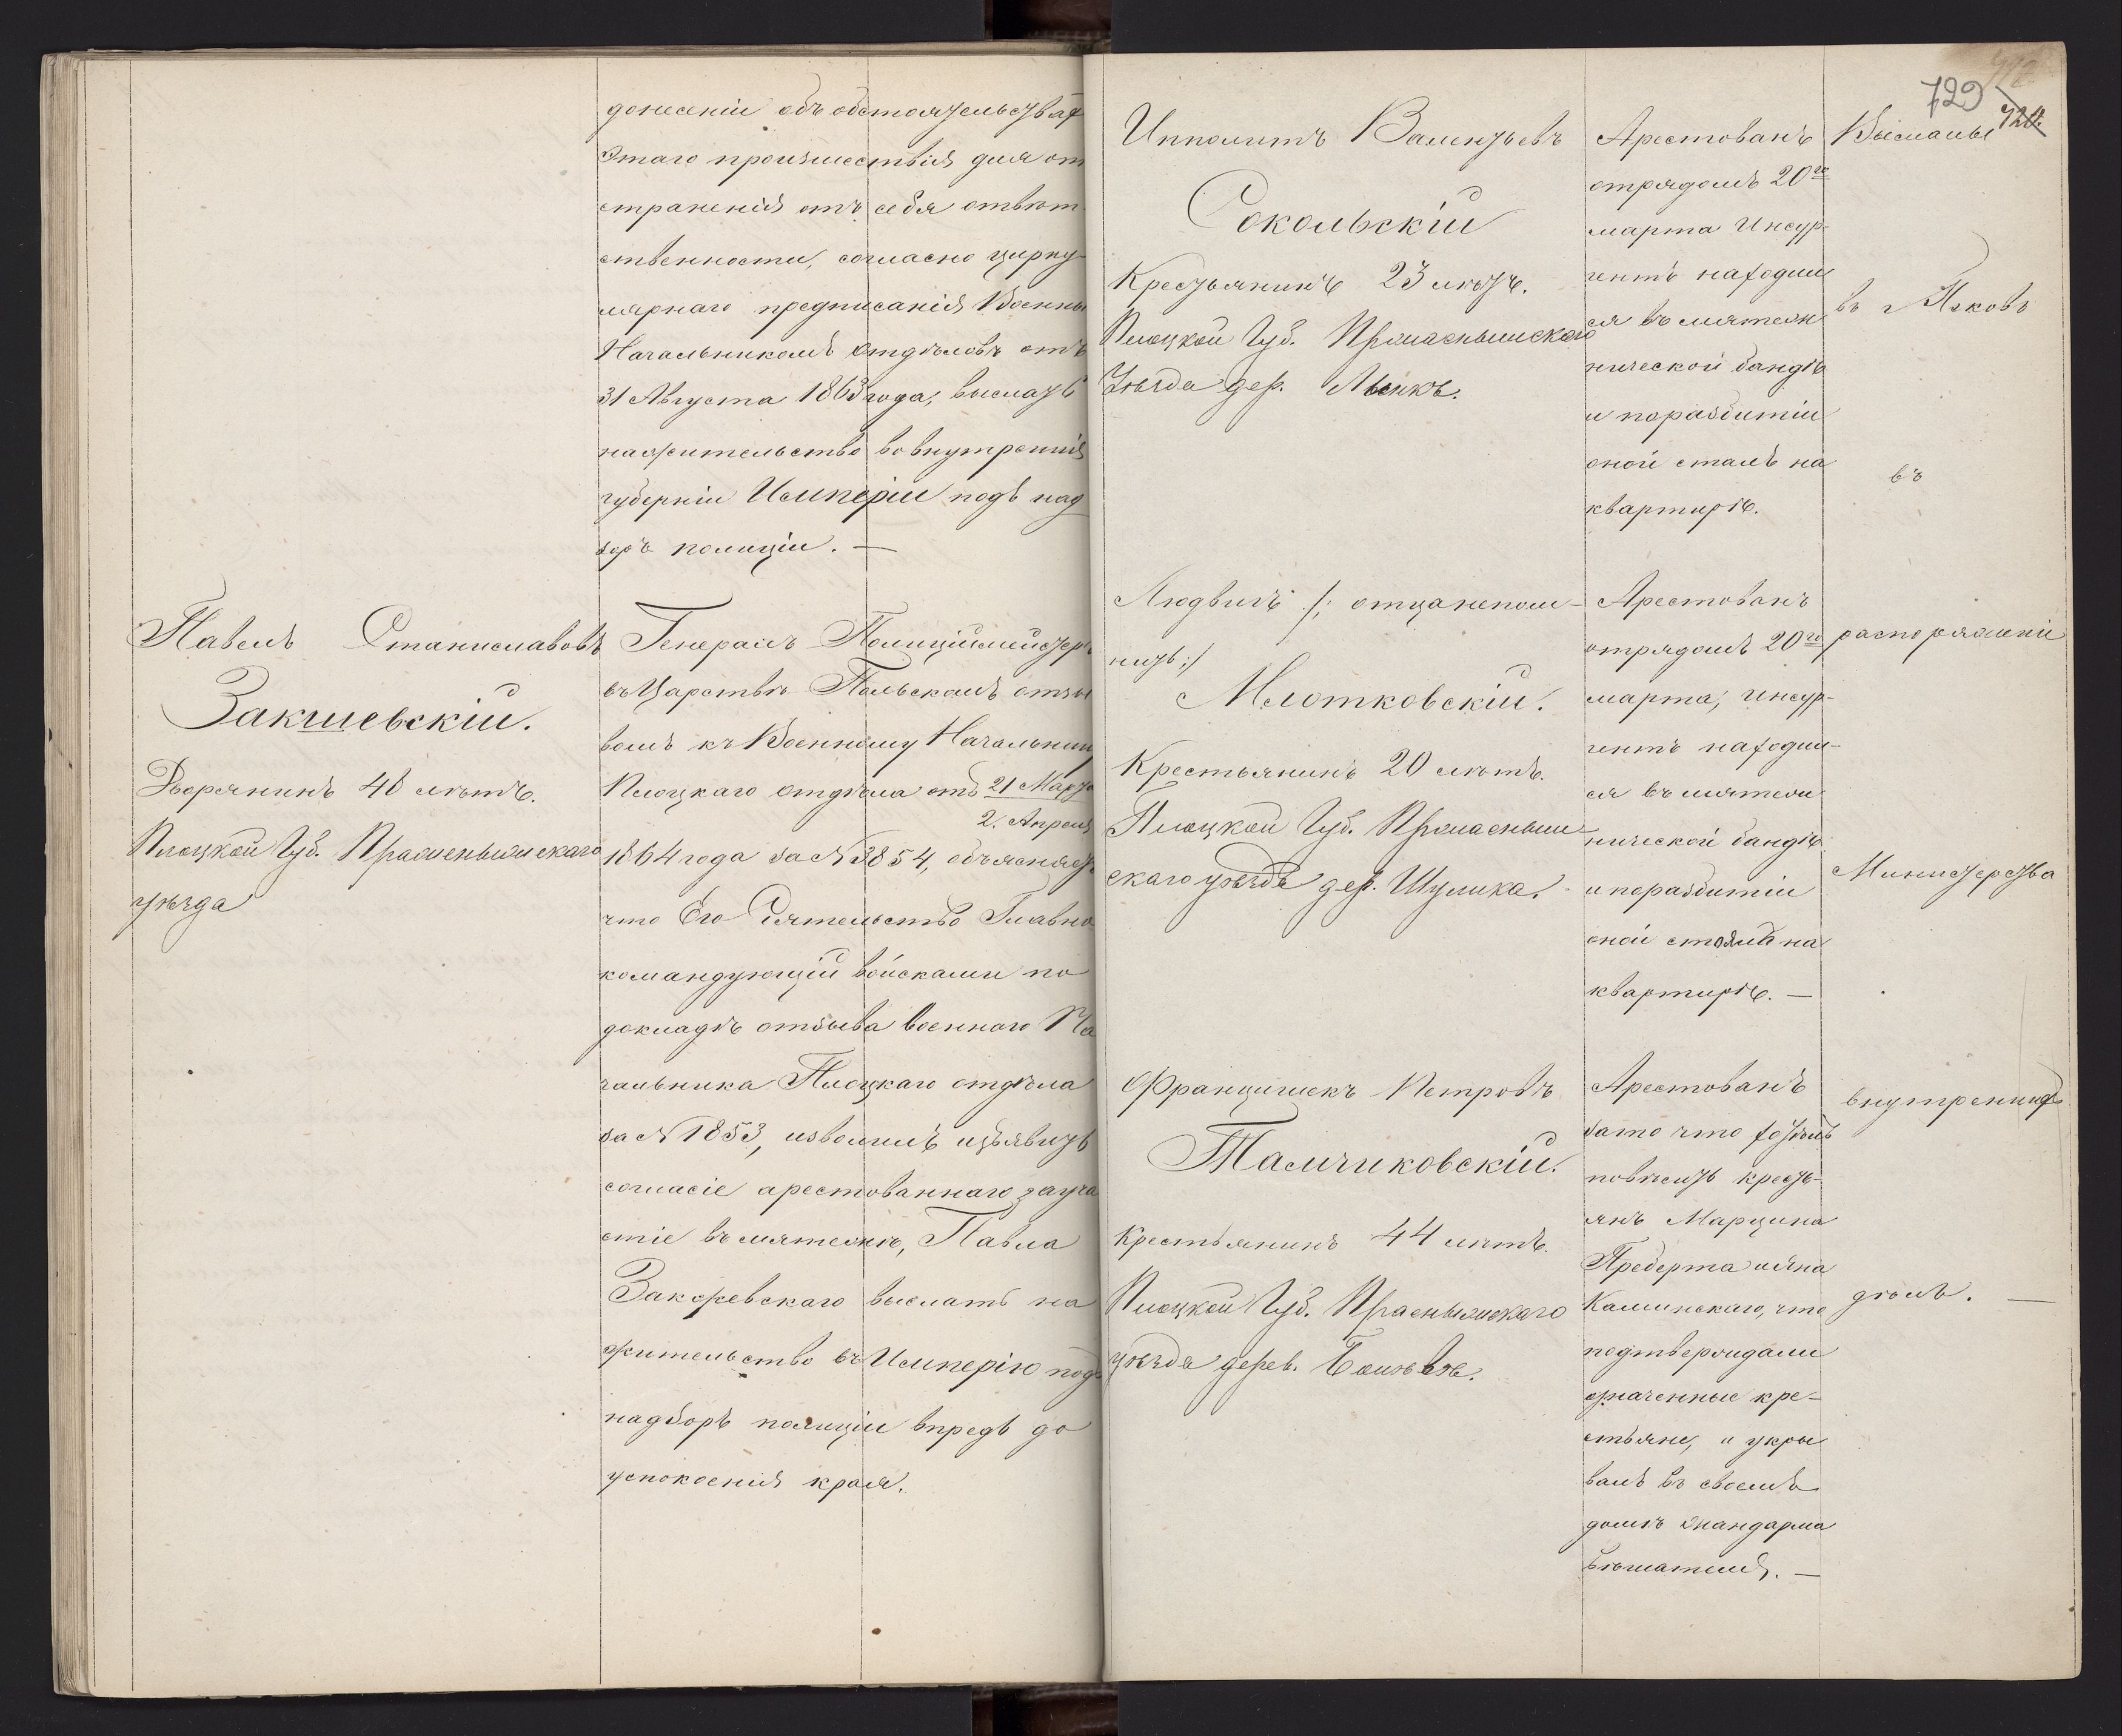 донесеніи объ обстоятельствах
этаго произшествія для от
страненія отъ себя отвѣт
ственности, согласно цирку
лярнаго предписанія Военны
Начальникомъ отдѣловъ отъ
31 Августа 1863 года, выслать
на жительство во внутреннія
губерніи Имперіи подъ над
зоръ полиціи. —
Павелъ Станиславовъ
Закшевскій.
Дворянинъ 40 лѣтъ.
Плоцкой Губ. Прасенышскаго
уѣзда
Генералъ Полиціймейстеръ
въ Царствѣ Польскомъ отзы
вомъ къ Военному Начальнику
Плоцкаго отдѣла отъ 21 Марта
2. Апрѣля
1864 года за № 3854, объясняетъ
что Его Сіятельство Главно
командующій войсками по
докладѣ отзыва военнаго На
чальника Плоцкаго отдѣла
за № 1853, изволилъ изъявить
согласіе арестованнаго за уча
стіе въ мятежѣ, Павла
Закржевскаго выслать на
жительство въ Имперію подъ
надзоръ полиціи впредь до
успокоенія края.
729
720.
Ипполитъ Валентьевъ
Сокольскій
Крестьянинъ 23 лѣтъ.
Плоцкой Губ. Прасенышскаго
Уѣзда дер.
Арестованъ
отрядомъ 20го
марта Инсур-
гентъ находил
ся въ мятеж
нической бандѣ
и поразбитіи
оной сталъ на
квартирѣ.
Людвигъ /: отца непом-
нитъ :/
Млотковскій.
Крестьянинъ 20 лѣтъ.
Плоцкой Губ. Прасеныш-
скаго уѣзда дер. Шумика.
Арестованъ
отрядомъ 20го
марта, Инсур-
гентъ находил-
ся въ мятеж
нической бандѣ
и поразбитіи
оной стоялъ на
квартирѣ. —
Францишекъ Петровъ
Тамчиковскій.
Крестьянинъ 44 лѣтъ.
Плоцкой Губ. Прасенышскаго
уѣзда дерев.
Арестованъ
зато что хотѣлъ
повѣсить кресть-
янъ Марцина
Преберта и Яна
Каминскаго, что
подтверждали
означенные кре-
стьяне, и укры
валъ въ своемъ
домѣ жандарма
вѣшателя. —
Высланы
въ г Псковъ
въ
распоряженіи
Министерства
внутреннихъ
дѣлъ. —